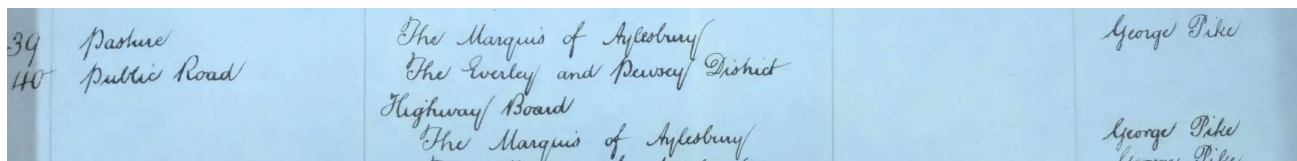 39 Pasture The Marquis of Aylesbury George Pike
40 Public Road The Everley and Pewsey District
Highway Board
The Marquis of Aylesbury George Pike
George Pike